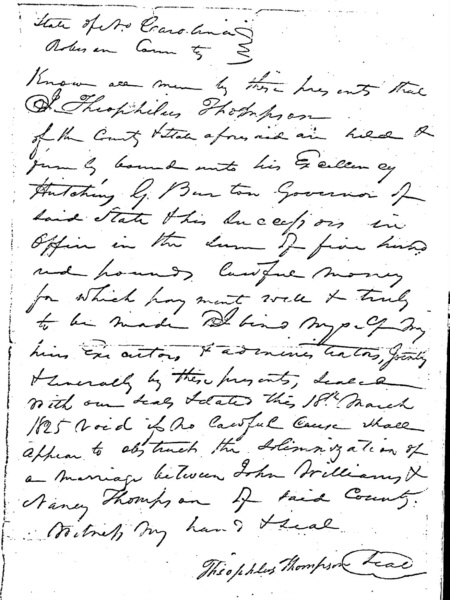 State of No Carolina
Robeson County
Know all men by these presents that
I Theophilus Thompson
of the County & State aforesaid am held &
firmly bound unto his Excellency
Hutchins G. Burton Governor of
said State & his Successors in
Office in the Sum of five hund
red pounds lawful money
for which payment well & truly
to be made I bind myself my
heirs Executors & administrators, Jointly
& severally by these presents, sealed
with our seals & dated this 18th March
1825 void if no lawful cause shall
appear to obstruct the solemnization of
a marriage between John Williams &
Nancy Thompson of said County.
Witness my hand & seal
Theophilus Thompson Seal